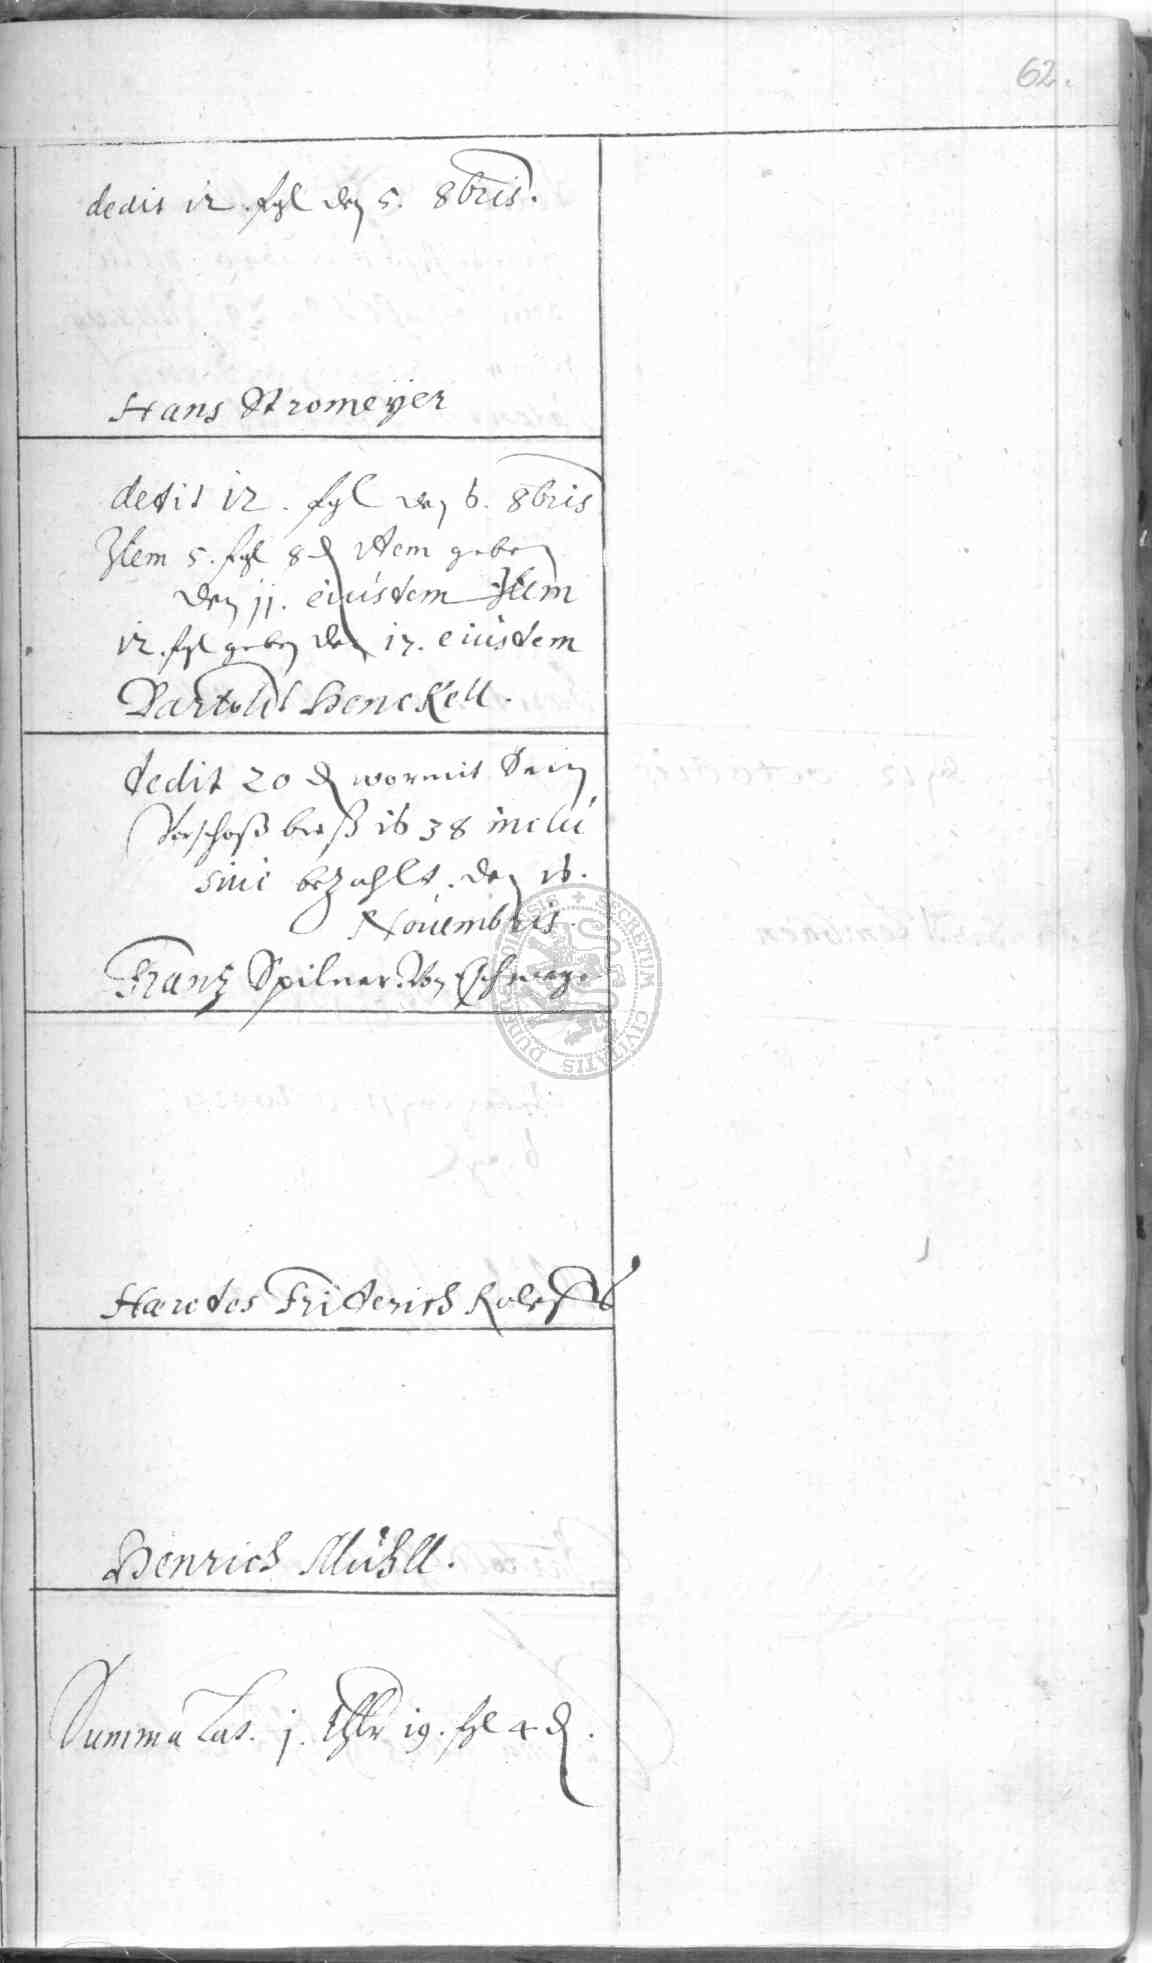 62.
dedit 12. ßgl den 5. 8bris.
Hans Stromeÿer
dedit 12. ßgl den 6. 8bris
Item 5. ßgl 8 ₰ Item geben
den 11. eiusdem Item
12. ßgl geben den 17. eiusdem
Bartold Henckell.
dedit 20 ₰ wormit sein
Vorschoß bies 1638 inclu
sive bezahlt. den 16.
Nouembris.
Frantz Spilner Von Eschwege
Hæredes Friderich Roleffs
Henrich Mühll.
Summa Lat. j. thlr 19. ßgl 4 ₰.
SECRETUM CIVITATIS DUDERSTADIENSIS